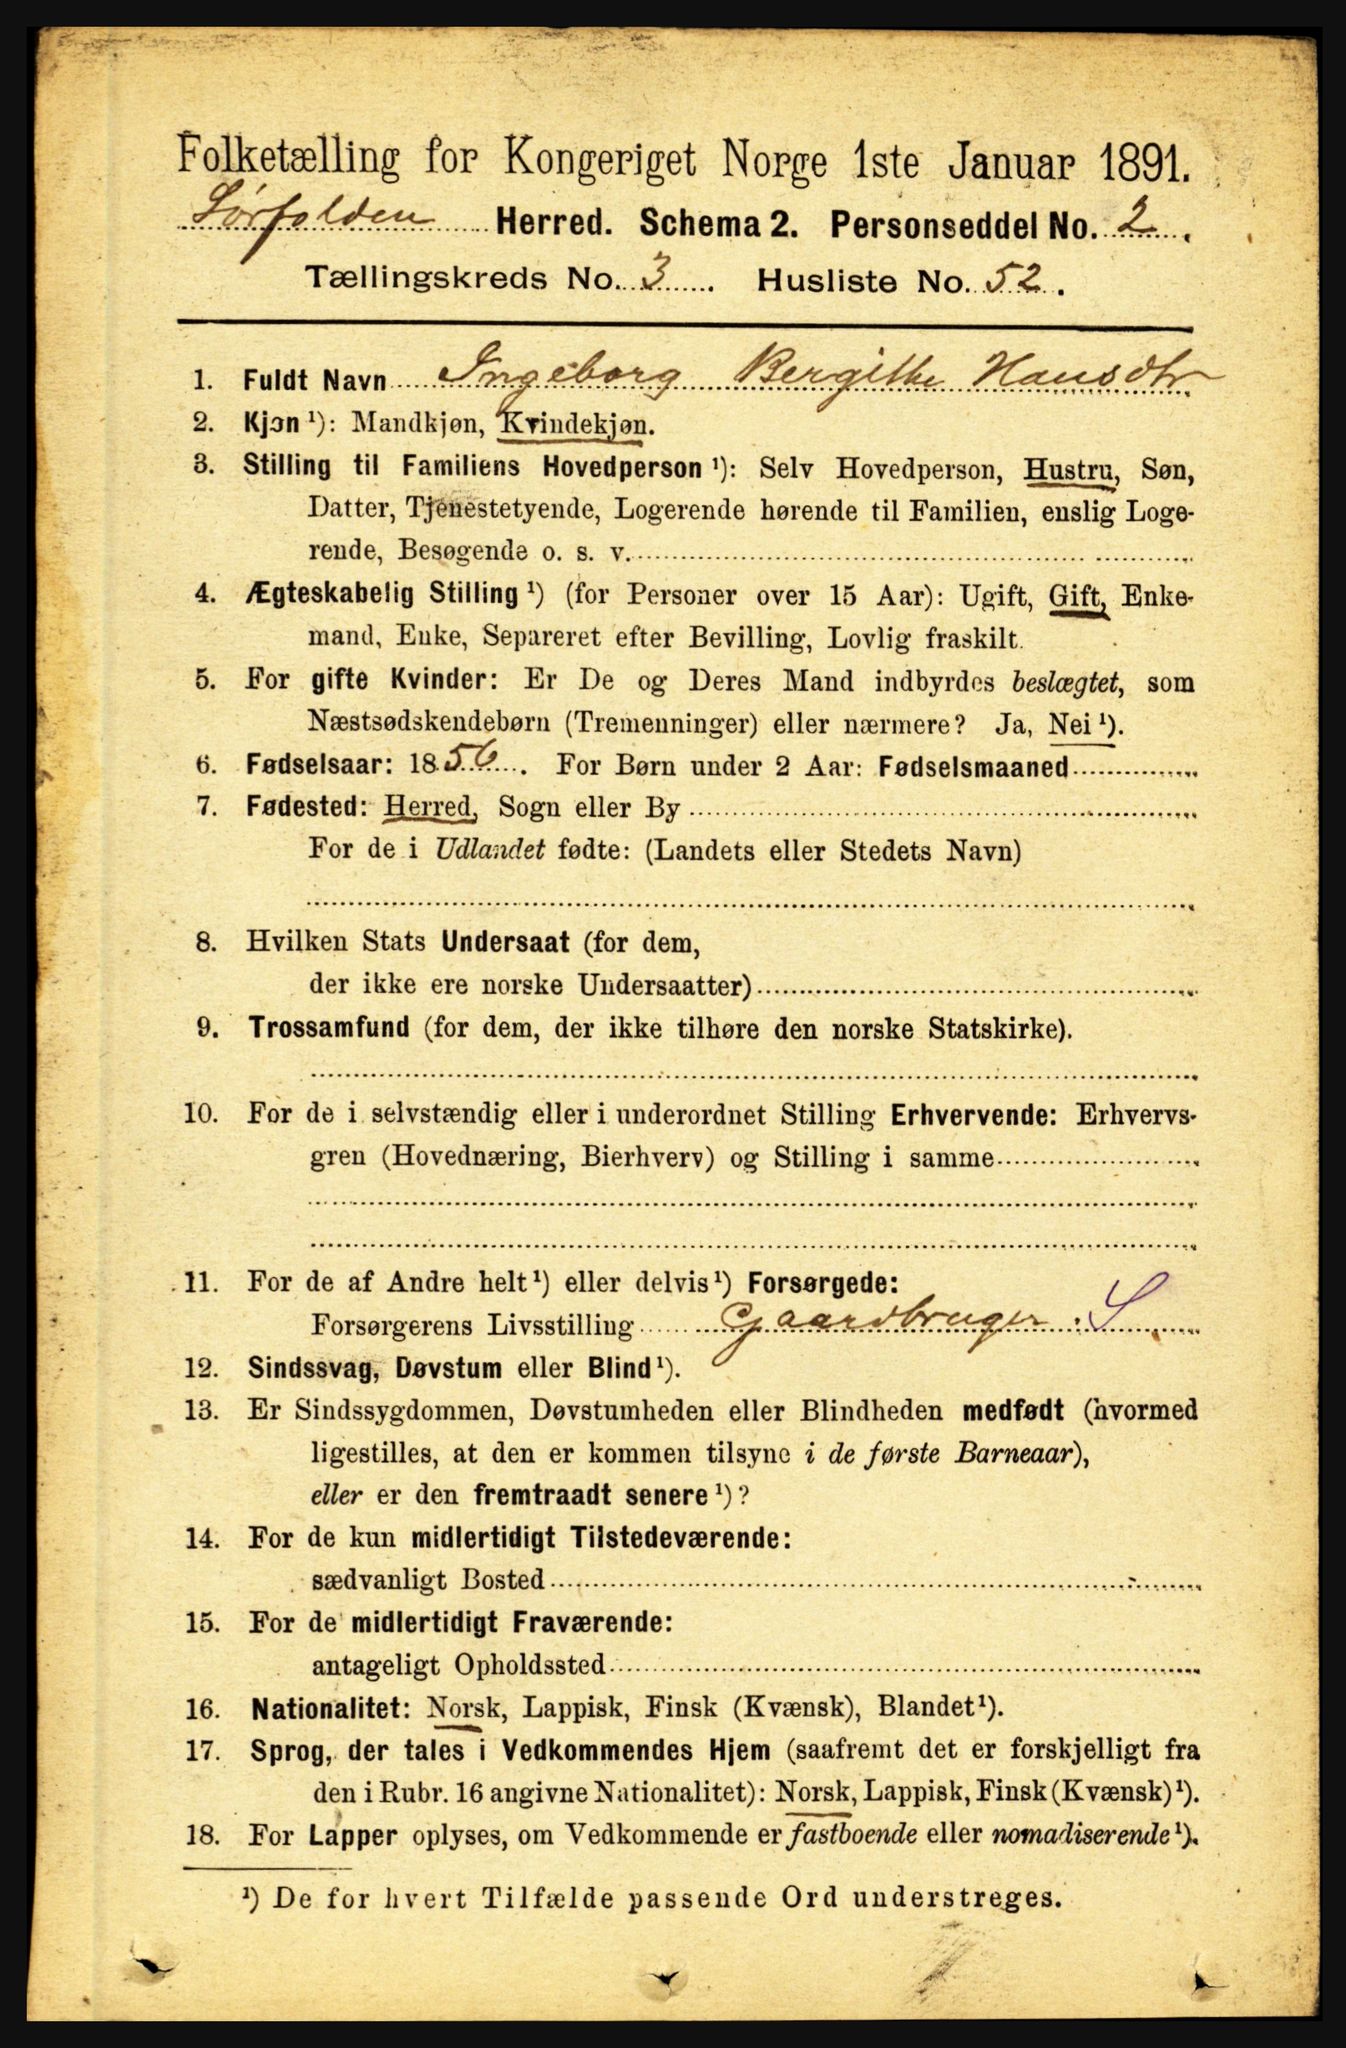 Folketælling for Kongeriget Norge 1ste Januar 1891.
Sørfolden Herred. Schema 2. Personseddel No. 2.
Tællingskreds No. 3. Husliste No. 52.
1. Fuldt Navn Ingeborg Bergithe Hansdtr
2. Kjøn ¹): Mandkjøn, Kvindekjøn.
3. Stilling til Familiens Hovedperson ¹): Selv Hovedperson, Hustru, Søn,
Datter, Tjenestetyende, Logerende hørende til Familien, enslig Loge-
rende, Besøgende o. s. v.
4. Ægteskabelig Stilling ¹) (for Personer over 15 Aar): Ugift, Gift, Enke-
mand, Enke, Separeret efter Bevilling, Lovlig fraskilt.
5. For gifte Kvinder: Er De og Deres Mand indbyrdes beslægtet, som
Næstsødskendebørn (Tremenninger) eller nærmere? Ja, Nei ¹).
6. Fødselsaar: 1856. For Børn under 2 Aar: Fødselsmaaned
7. Fødested: Herred, Sogn eller By
For de i Udlandet fødte: (Landets eller Stedets Navn)
8. Hvilken Stats Undersaat (for dem,
der ikke ere norske Undersaatter)
9. Trossamfund (for dem, der ikke tilhøre den norske Statskirke).
10. For de i selvstændig eller i underordnet Stilling Erhvervende: Erhvervs-
gren (Hovednæring, Bierhverv) og Stilling i samme
11. For de af Andre helt ¹) eller delvis ¹) Forsørgede:
Forsørgerens Livsstilling Gaardbruger. S
12. Sindssvag, Døvstum eller Blind ¹).
13. Er Sindssygdommen, Døvstumheden eller Blindheden medfødt (hvormed
ligestilles, at den er kommen tilsyne i de første Barneaar),
eller er den fremtraadt senere ¹)?
14. For de kun midlertidigt Tilstedeværende:
sædvanligt Bosted
15. For de midlertidigt Fraværende:
antageligt Opholdssted
16. Nationalitet: Norsk, Lappisk, Finsk (Kvænsk), Blandet ¹).
17. Sprog, der tales i Vedkommendes Hjem (saafremt det er forskjelligt fra
den i Rubr. 16 angivne Nationalitet): Norsk, Lappisk, Finsk (Kvænsk) ¹).
18. For Lapper oplyses, om Vedkommende er fastboende eller nomadiserende ¹).
¹) De for hvert Tilfælde passende Ord understreges.